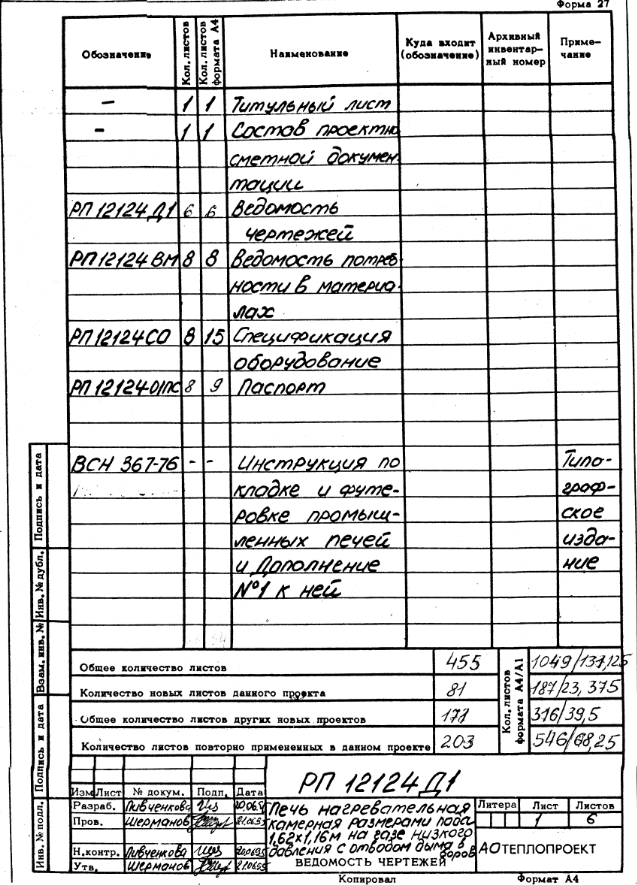 Форма 27
Обозначение Кол. листов Кол. листов формата А4 Наименование Куда входит (обозначение) Архивный инвентар-ный номер Приме-чание
— 1 1 Титульный лист
— 1 1 Состав проектно
сметной докумен
тации
РП 12124 Д1 6 6 Ведомость
чертежей
РП 12124 ВМ 8 8 Ведомость потреб
ности в материа
лах
РП 12124 СО 8 15 Спецификация
оборудование
РП 12124-01ПС 8 9 Паспорт
ВСН 367-76 - - Инструкция по Типо-
кладке и футе- граф-
ровке промыш- ское
ленных печей изда-
и Дополнение ние
№1 к ней
Общее количество листов 455 1049/131,125
Количество новых листов данного проекта 81 187/23,375
Общее количество листов других новых проектов 171 316/39,5
Количество листов повторно примененных в данном проекте 203 546/68,25
Кол. листов формата А4/А1
Подпись и дата
Инв. № дубл.
Взам. инв. №
Подпись и дата
Инв. № подл.
РП 12124 Д1
Изм Лист № докум. Подп. Дата
Разраб. Пивченкова
Пров. Шерманов
Н.контр. Пивченкова
Утв. Шерманов
Печь нагревательная
камерная размерами пода
1,62х1,16м на газе низкого
давления с отводом дыма в боров
ВЕДОМОСТЬ ЧЕРТЕЖЕЙ
Литера Лист Листов
1 6
АОТЕПЛОПРОЕКТ
Копировал Формат А4